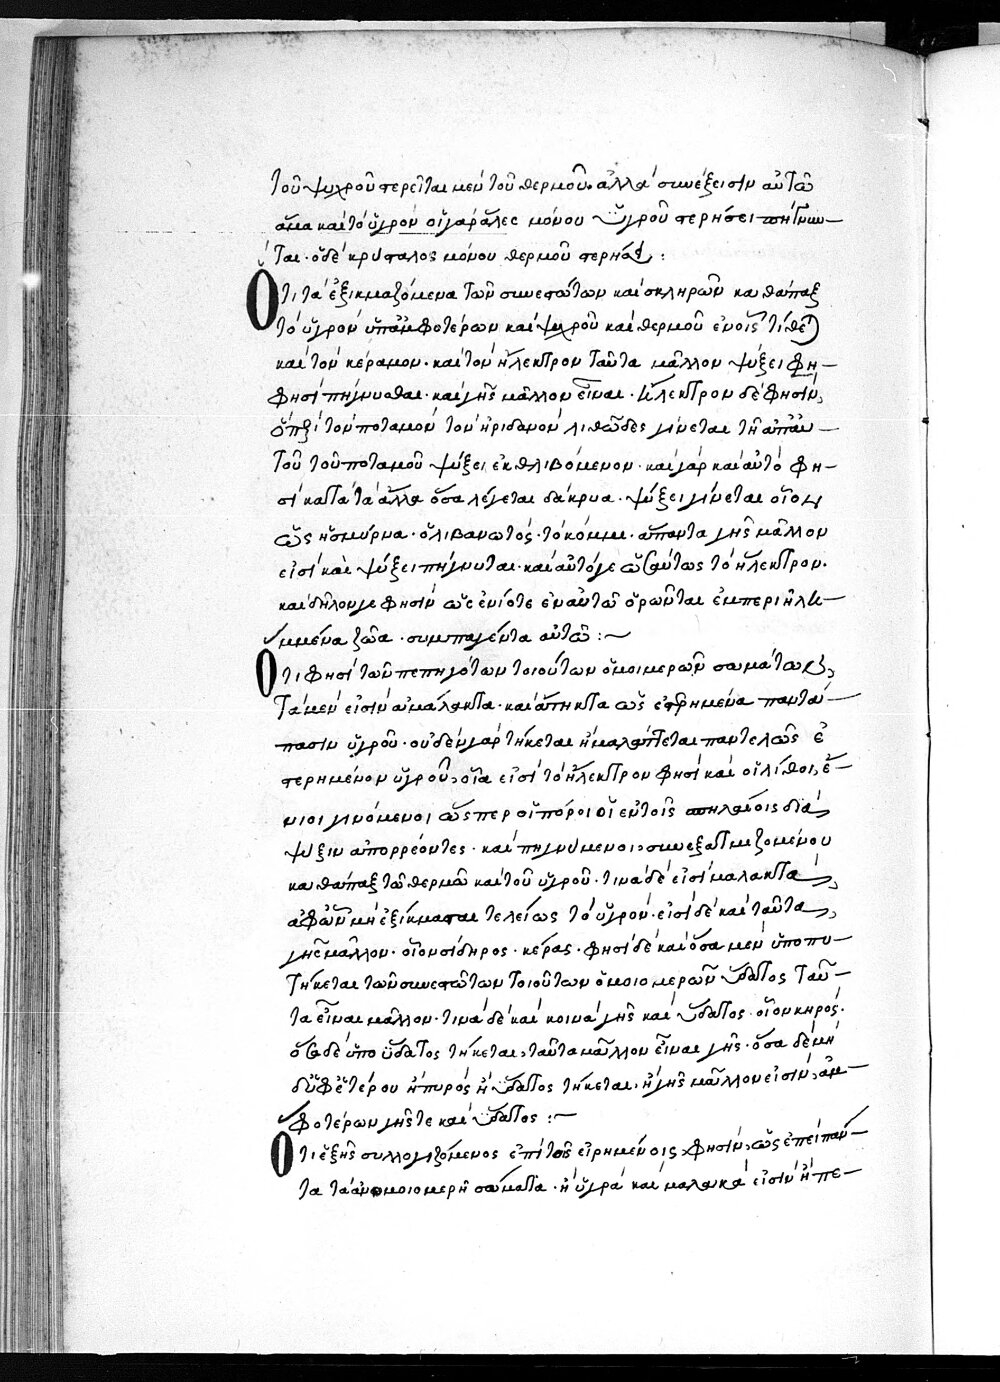 τοῦ ψυχροῦ στερεῖται μὲν τοῦ θερμοῦ. ἀλλὰ συνέξεισιν αὐτῶ
ἅμα καὶ τὸ ὑγρόν. οἱ γὰρ ἅλες μόνου ὑγροῦ στερήσει πήγνυν
ται. ὁ δὲ κρύσταλος μόνου θερμοῦ στερήσει:
Ὅτι τὰ ἐξικμαζόμενα τῶν συνεστώτων καὶ σκληρῶν καθάπαξ
τὸ ὑγρὸν ὑπ' ἀμφοτέρων καὶ ψυχροῦ καὶ θερμοῦ ἐν οἷς τίθεται
καὶ τὸν κέραμον. καὶ τὸν ἤλεκτρον ταῦτα μᾶλλον ψύξει φη
φησὶ πήγνυσθαι. καὶ γῆς μᾶλλον εἶναι. ἤλεκτρον δέ φησιν,
ὃ περὶ τὸν ποταμὸν τὸν ἠριδανὸν λιθῶδες γίνεται τῆ ἀπ' αὐ
τοῦ τοῦ ποταμοῦ ψύξει ἐκθλιβόμενον. καὶ γὰρ καὶ αὐτό φη
σι κατὰ τὰ ἄλλα ὅσα λέγεται δάκρυα. ψύξει γίνεται οἷον
ὡς ἡ σμύρνα. ὁ λιβανωτός. τὸ κόμμι. ἅπαντα γῆς μᾶλλον
εἰσὶ καὶ ψύξει πήγνυται. καὶ αὐτό γε ὡσαύτως τὸ ἤλεκτρον.
καὶ δῆλόν γε φησὶν ὡς ἐνίοτε ἐν αὐτῶ ὁρῶνται ἐμπεριειλη
μμένα ζῶα. συμπαγέντα αὐτῶ:~
Ὅτι φησὶ τῶν πεπηγότων τοιούτων ὁμοιμερῶν σωμάτων,
τὰ μέν εἰσιν ἀμάλακτα. καὶ ἄτηκτα ὡς ἐστερημένα παντά
πασιν ὑγροῦ. οὐδὲν γὰρ τήκεται ἢ μαλάττεται παντελῶς ἐ
στερημένον ὑγροῦ, οἷα εἰσὶ τὸ ἤλεκτρον φησὶ καὶ οἱ λίθοι, ἔ
νιοι γινόμενοι ὥσπερ οἱ πόροι οἱ ἐν τοῖς σπηλαίοις διὰ
ψύξιν ἀπορρέοντες. καὶ πηγνύμενοι, συνεξατμιζομένου
καθάπαξ τῶ θερμῶ καὶ τοῦ ὑγροῦ. τινὰ δέ εἰσι μαλακτὰ,
ἀφ' ὧν μὴ ἐξίκμασται τελείως τὸ ὑγρόν. εἰσὶ δὲ καὶ ταῦτα,
γῆς μᾶλλον. οἷον σίδηρος. κέρας. φησὶ δὲ καὶ ὅσα μὲν ὑπὸ πυ
τήκεται τῶν συνεστώτων τοιούτων ὁμοιομερῶν ὕδατος ταῦ
τα εἶναι μᾶλλον. τινὰ δὲ καὶ κοινὰ γῆς καὶ ὕδατος. οἷον κηρός.
ὅσα δὲ ὑπὸ ὕδατος τήκεται, ταῦτα μᾶλλον εἶναι γῆς. ὅσα δὲ μὴ
δ' ὑφ' ἑτέρου ἢ πυρὸς ἢ ὕδατος τήκεται. ἢ γῆς μᾶλλον εἰσὶν, ἀμ
φοτέρων γῆς τε καὶ ὕδατος:~
Ὅτι ἑξῆς συλλογιζόμενος ἐπὶ τοῖς εἰρημένοις φησὶν, ὡς ἐπεὶ πάν
τα τὰ ἀνομοιομερῆ σώματα. ἢ ὑγρὰ καὶ μαλακά εἰσιν ἢ πε